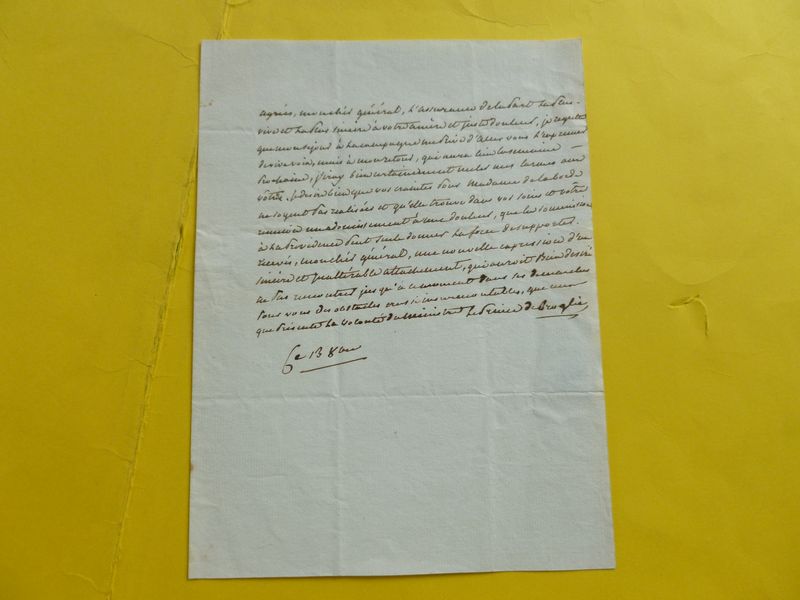 agreés, mon cher général, l'assurance de la part la plus
vive et la plus sincère à votre amère et juste douleur, je regrette
que mon sejour à la campagne me prive d'aller vous l'exprimer
de vive voix, mais à mon retour, qui aura lieu la semaine
prochaine, j'iray bien certainement meler mes larmes aux
vôtres. je desire bien que vos craintes pour madame de la
ne soyent pas realisées et qu'elle trouve dans vos soins et votre
reunion un adoucissement à une douleur, que la soumission
à la providence peut seule donner la force de supporter.
recevés, mon cher général, une nouvelle expression d'un
sincère et inalterable attachement, qui auroit bien desiré
ne pas rencontrer jusqu'à ce moment dans ses demarches
pour vous des obstacles aussi insurmontables, que ceux
que présente la volonté du ministre le prince de Broglie
Ce 13 8bre